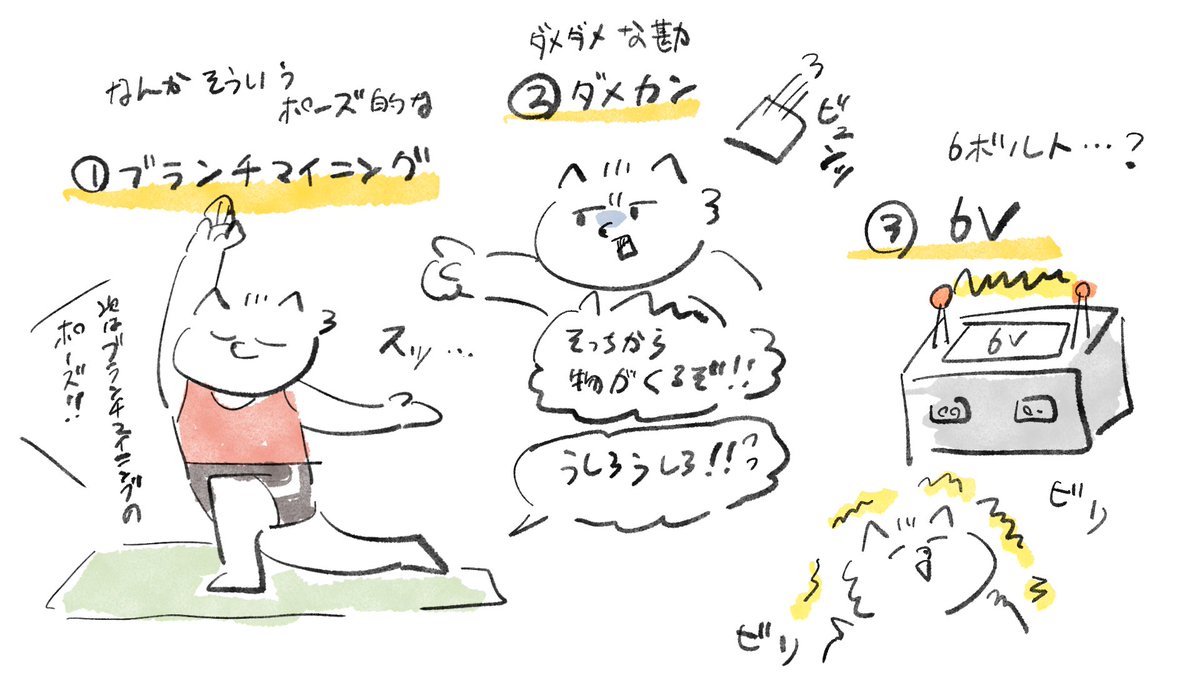 なんか そういう
ポーズ的な
①ブランチマイニング
次はブランチマイニングの
ポーズ!!
スッ…
ダメダメ な勘
②ダメカン
ビュンッ
そっちから
物がくるぞ!!
うしろうしろ!!
6ボルト…?
③ 6V
6V
ビリ
ビリ